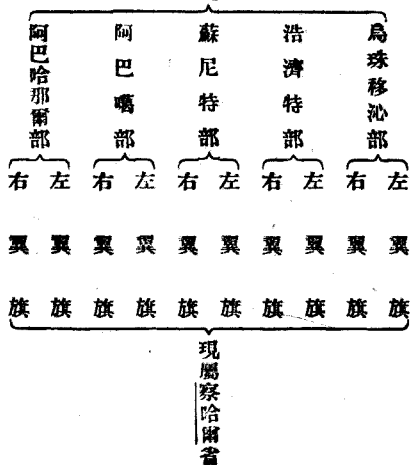 烏珠移沁部
左翼旗
右翼旗
浩濟特部
左翼旗
右翼旗
蘇尼特部
左翼旗
右翼旗
阿巴噶部
左翼旗
右翼旗
阿巴哈那爾部
左翼旗
右翼旗
現屬察哈爾省